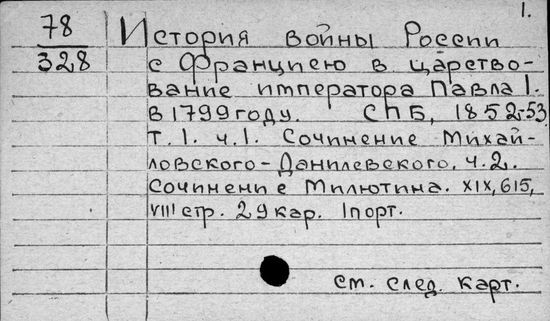 1.
78
328
История войны России
с Францiею в царство-
вание императора Павла I.
в 1799 году. СПБ, 1852-53
т. I. ч. I. Сочинение Михай-
ловского-Данилевского, ч. 2.
Сочинение Милютина. XIX, 615,
VIII стр. 29 кар. 1 порт.
см. след. карт.